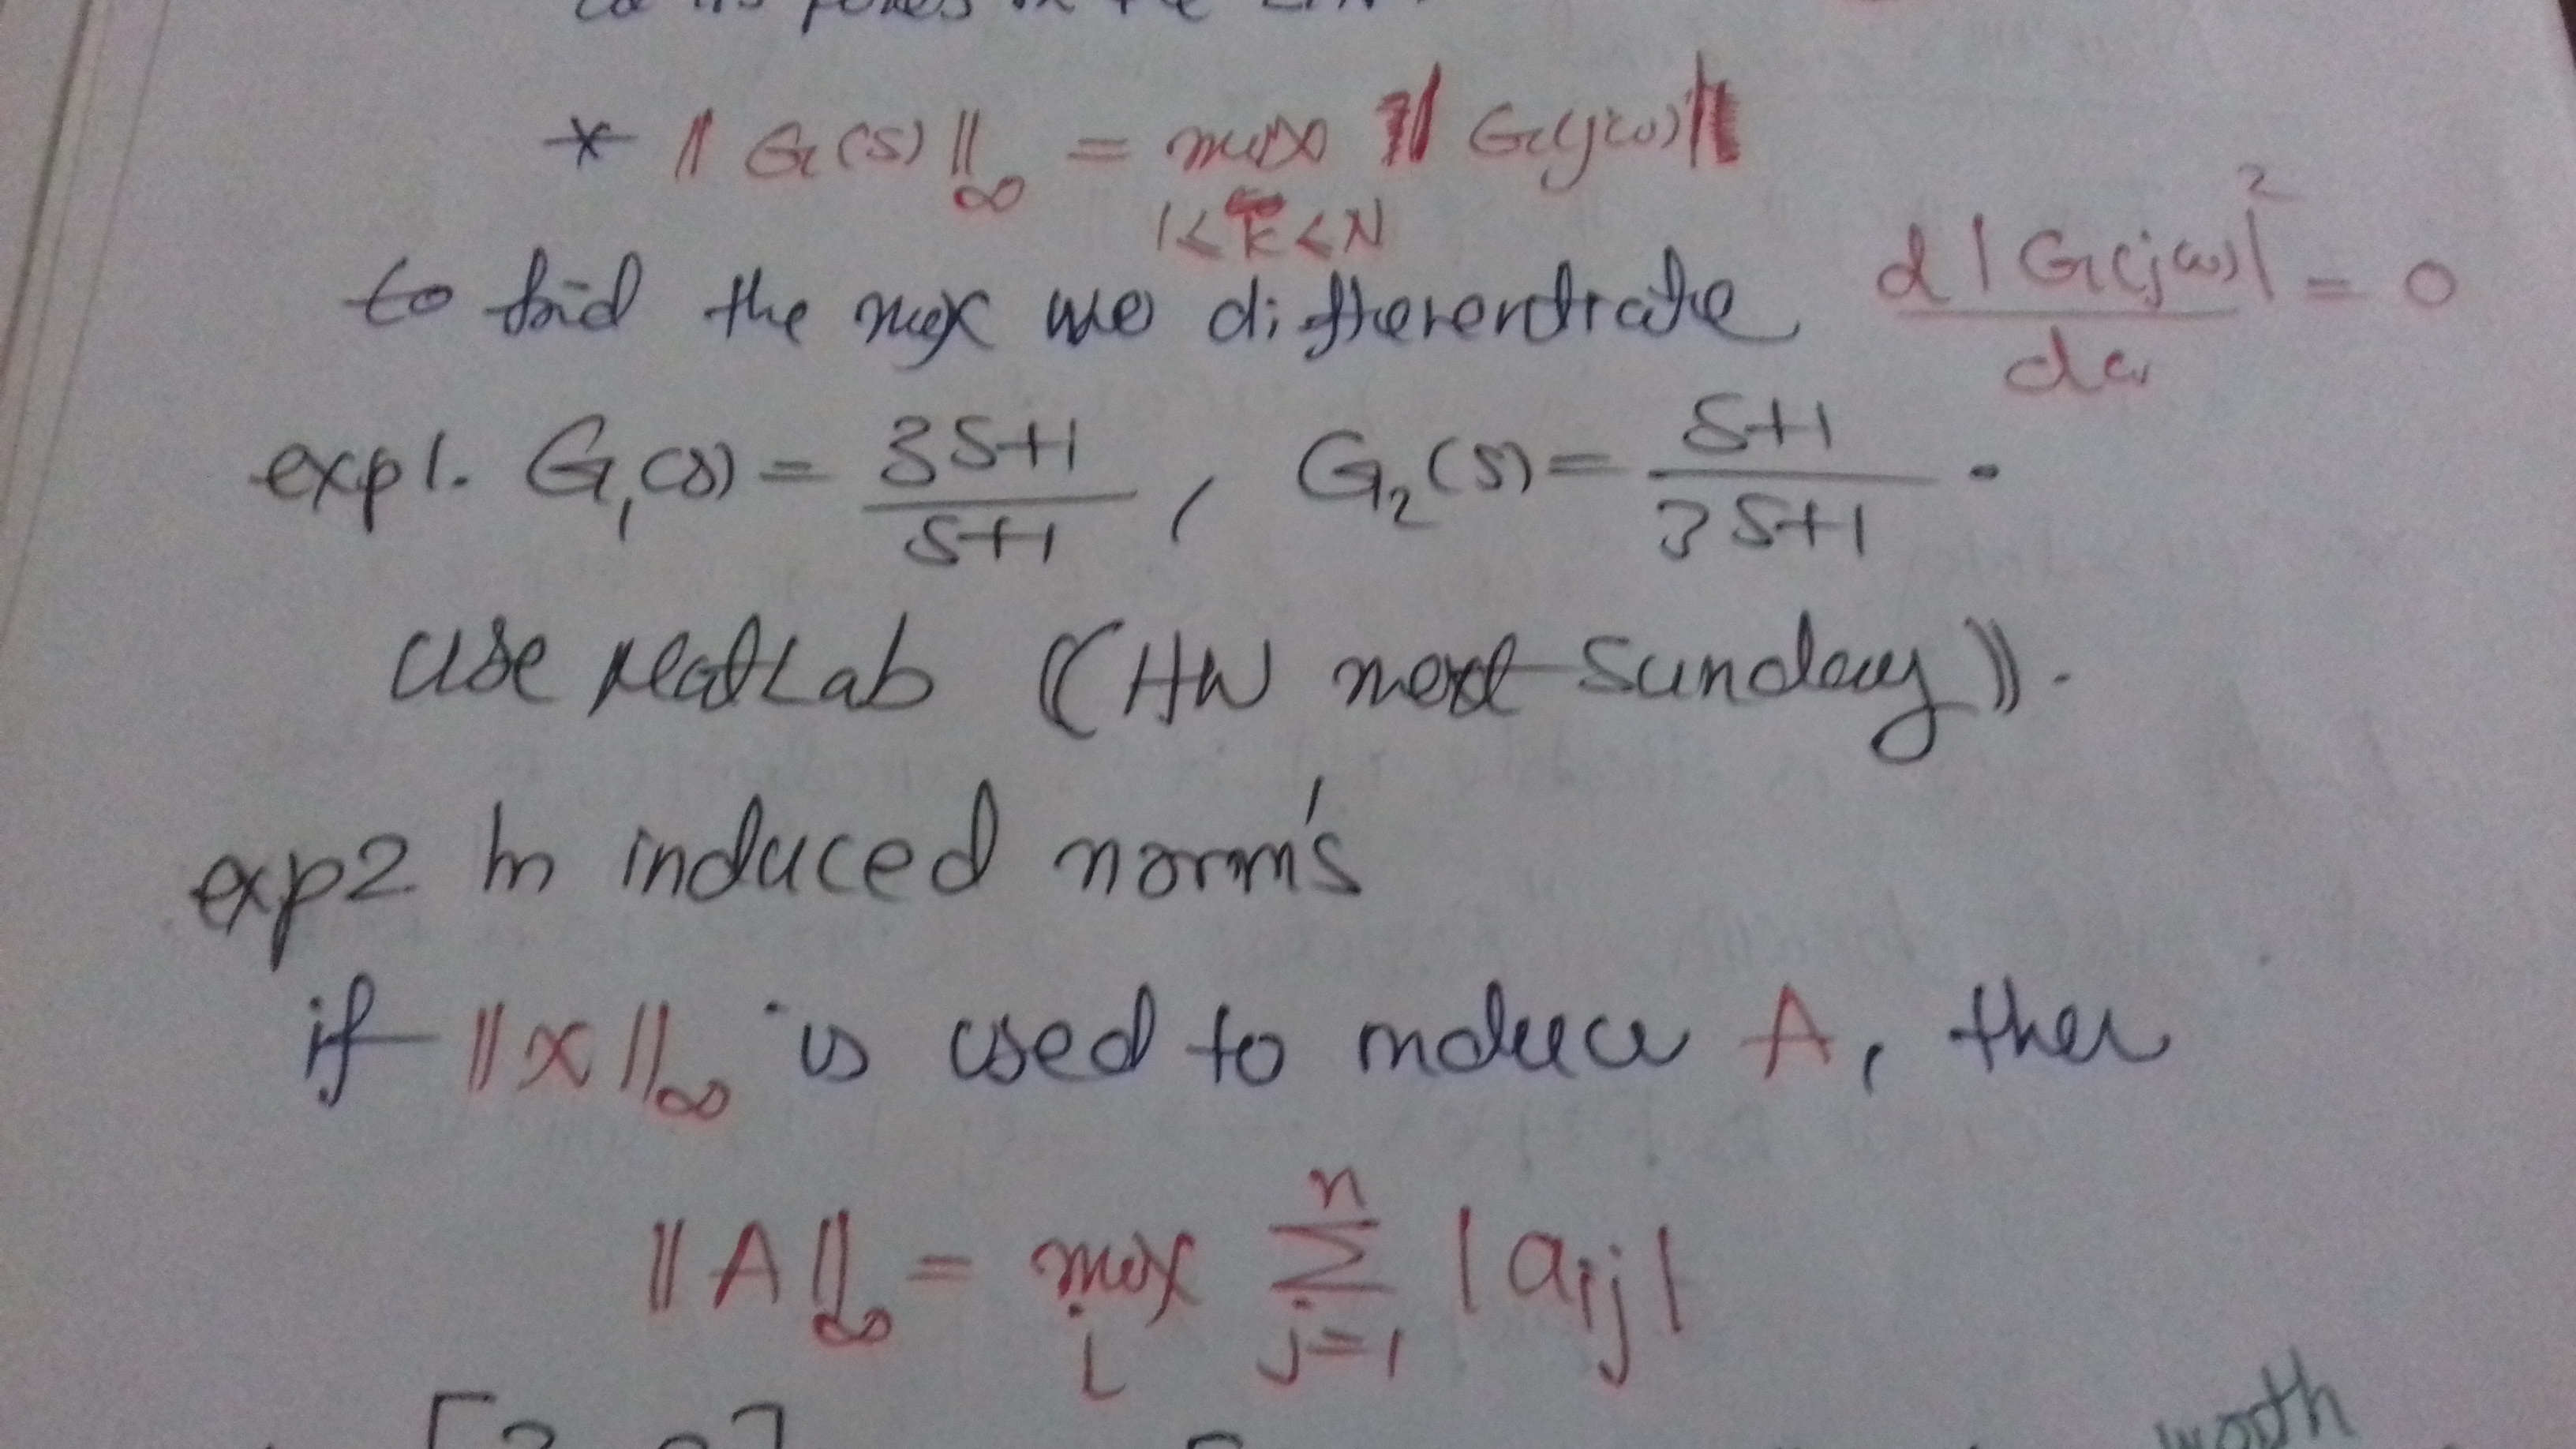 * || G(s) ||∞ = max | G(jω) |
1 < k < N
to find the max we differentiate d | G(jω) |² / dω = 0
exp1. G₁(s) = 3S+1 / S+1 , G₂(s) = S+1 / 3S+1 .
use MatLab ((HW next Sunday)).
exp2 In induced norm's
if || x ||∞ is used to induce A, then
|| A ||∞ = max_i Σ_{j=1}^{n} | a_ij |
worth